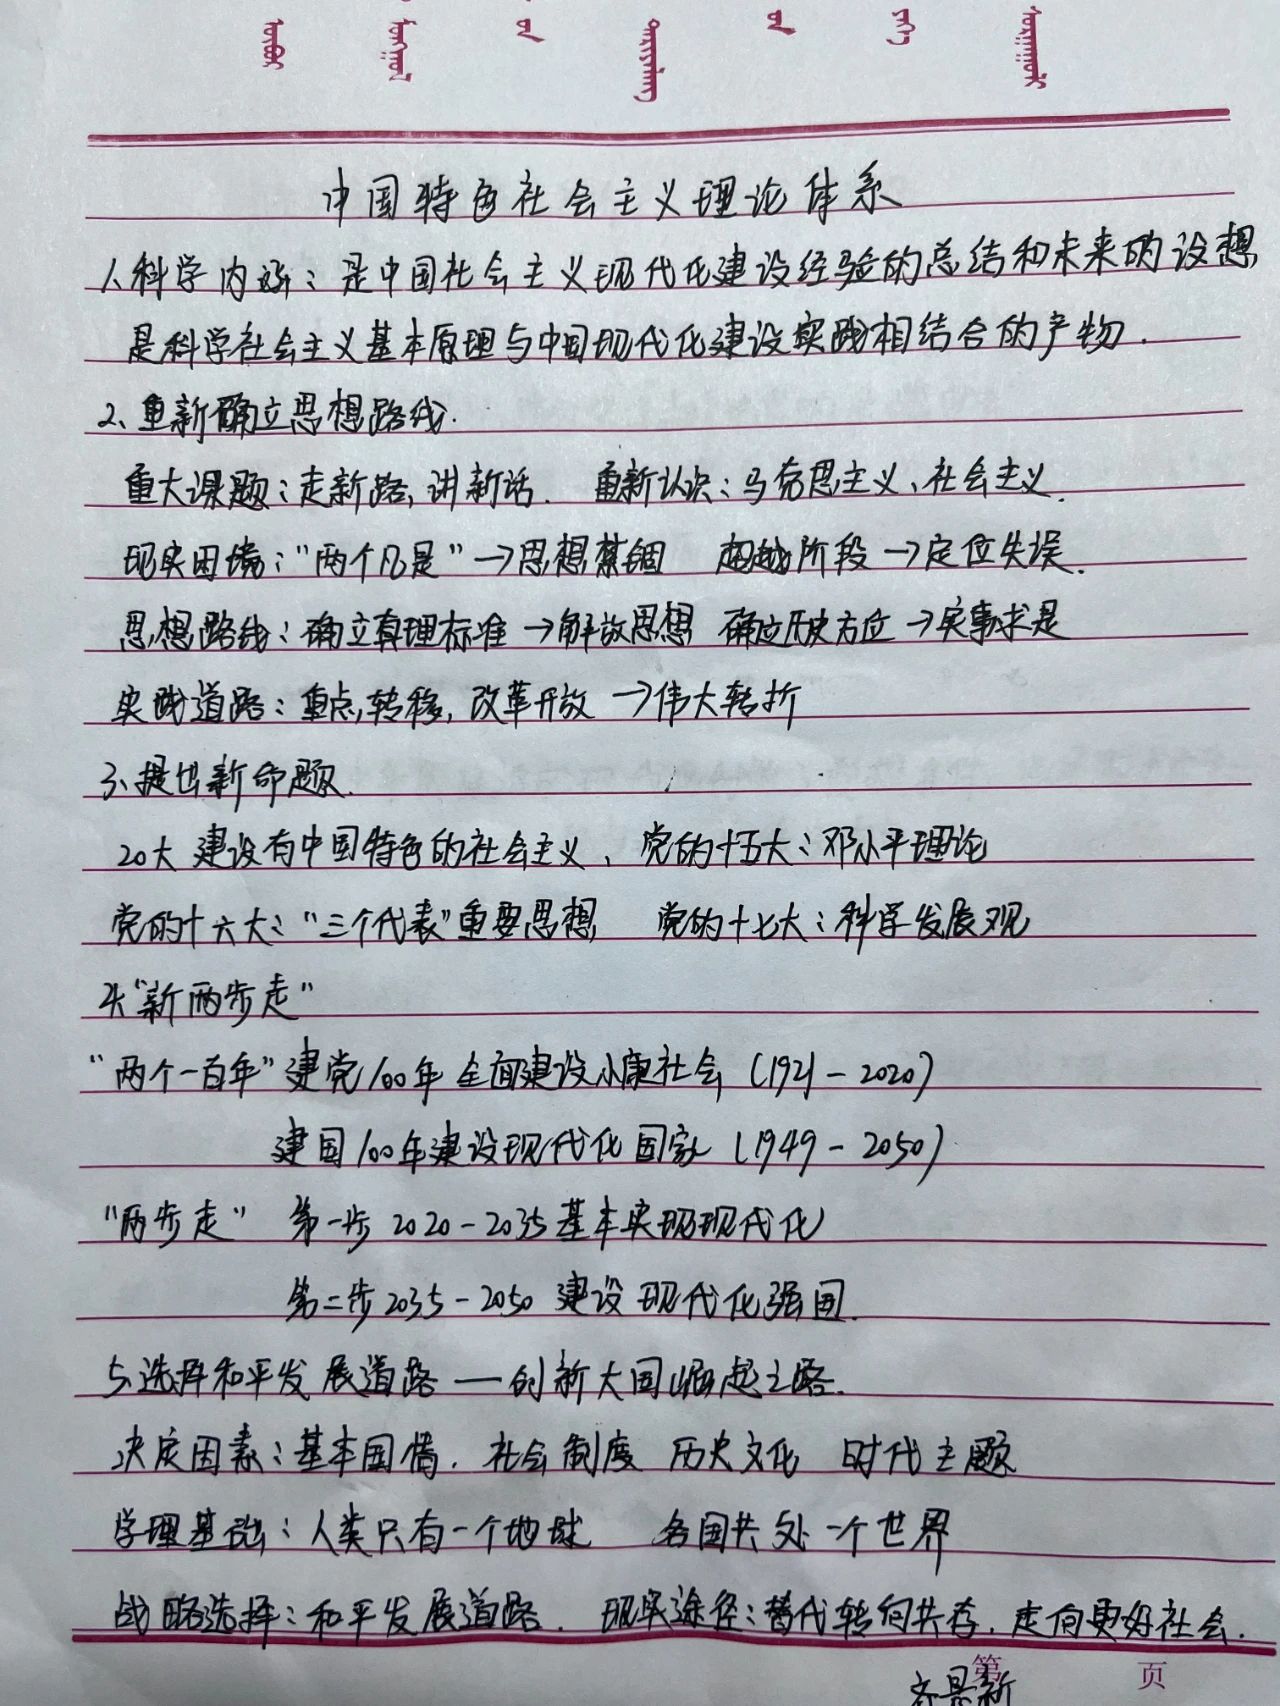 中国特色社会主义理论体系
1.科学内涵：是中国社会主义现代化建设经验的总结和未来的设想
是科学社会主义基本原理与中国现代化建设实践相结合的产物.
2、重新确立思想路线.
重大课题：走新路,讲新话. 重新认识：马克思主义、社会主义.
现实困境："两个凡是"→思想禁锢 超越阶段→定位失误.
思想路线：确立真理标准→解放思想 确立历史方位→实事求是
实践道路：重点转移,改革开放→伟大转折
3、提出新命题.
20大 建设有中国特色的社会主义、党的十五大：邓小平理论
党的十六大："三个代表"重要思想 党的十七大：科学发展观
4."新两步走"
"两个一百年"建党100年 全面建设小康社会（1921-2020）
建国100年建设现代化国家（1949-2050）
"两步走" 第一步 2020-2035基本实现现代化
第二步2035-2050 建设现代化强国.
5.选择和平发展道路——创新大国崛起之路.
决定因素：基本国情.社会制度 历史文化 时代主题
学理基础：人类只有一个地球 各国共处一个世界
战略选择：和平发展道路. 现实途径：替代转向共存.走向更好社会.
第 页
齐景新